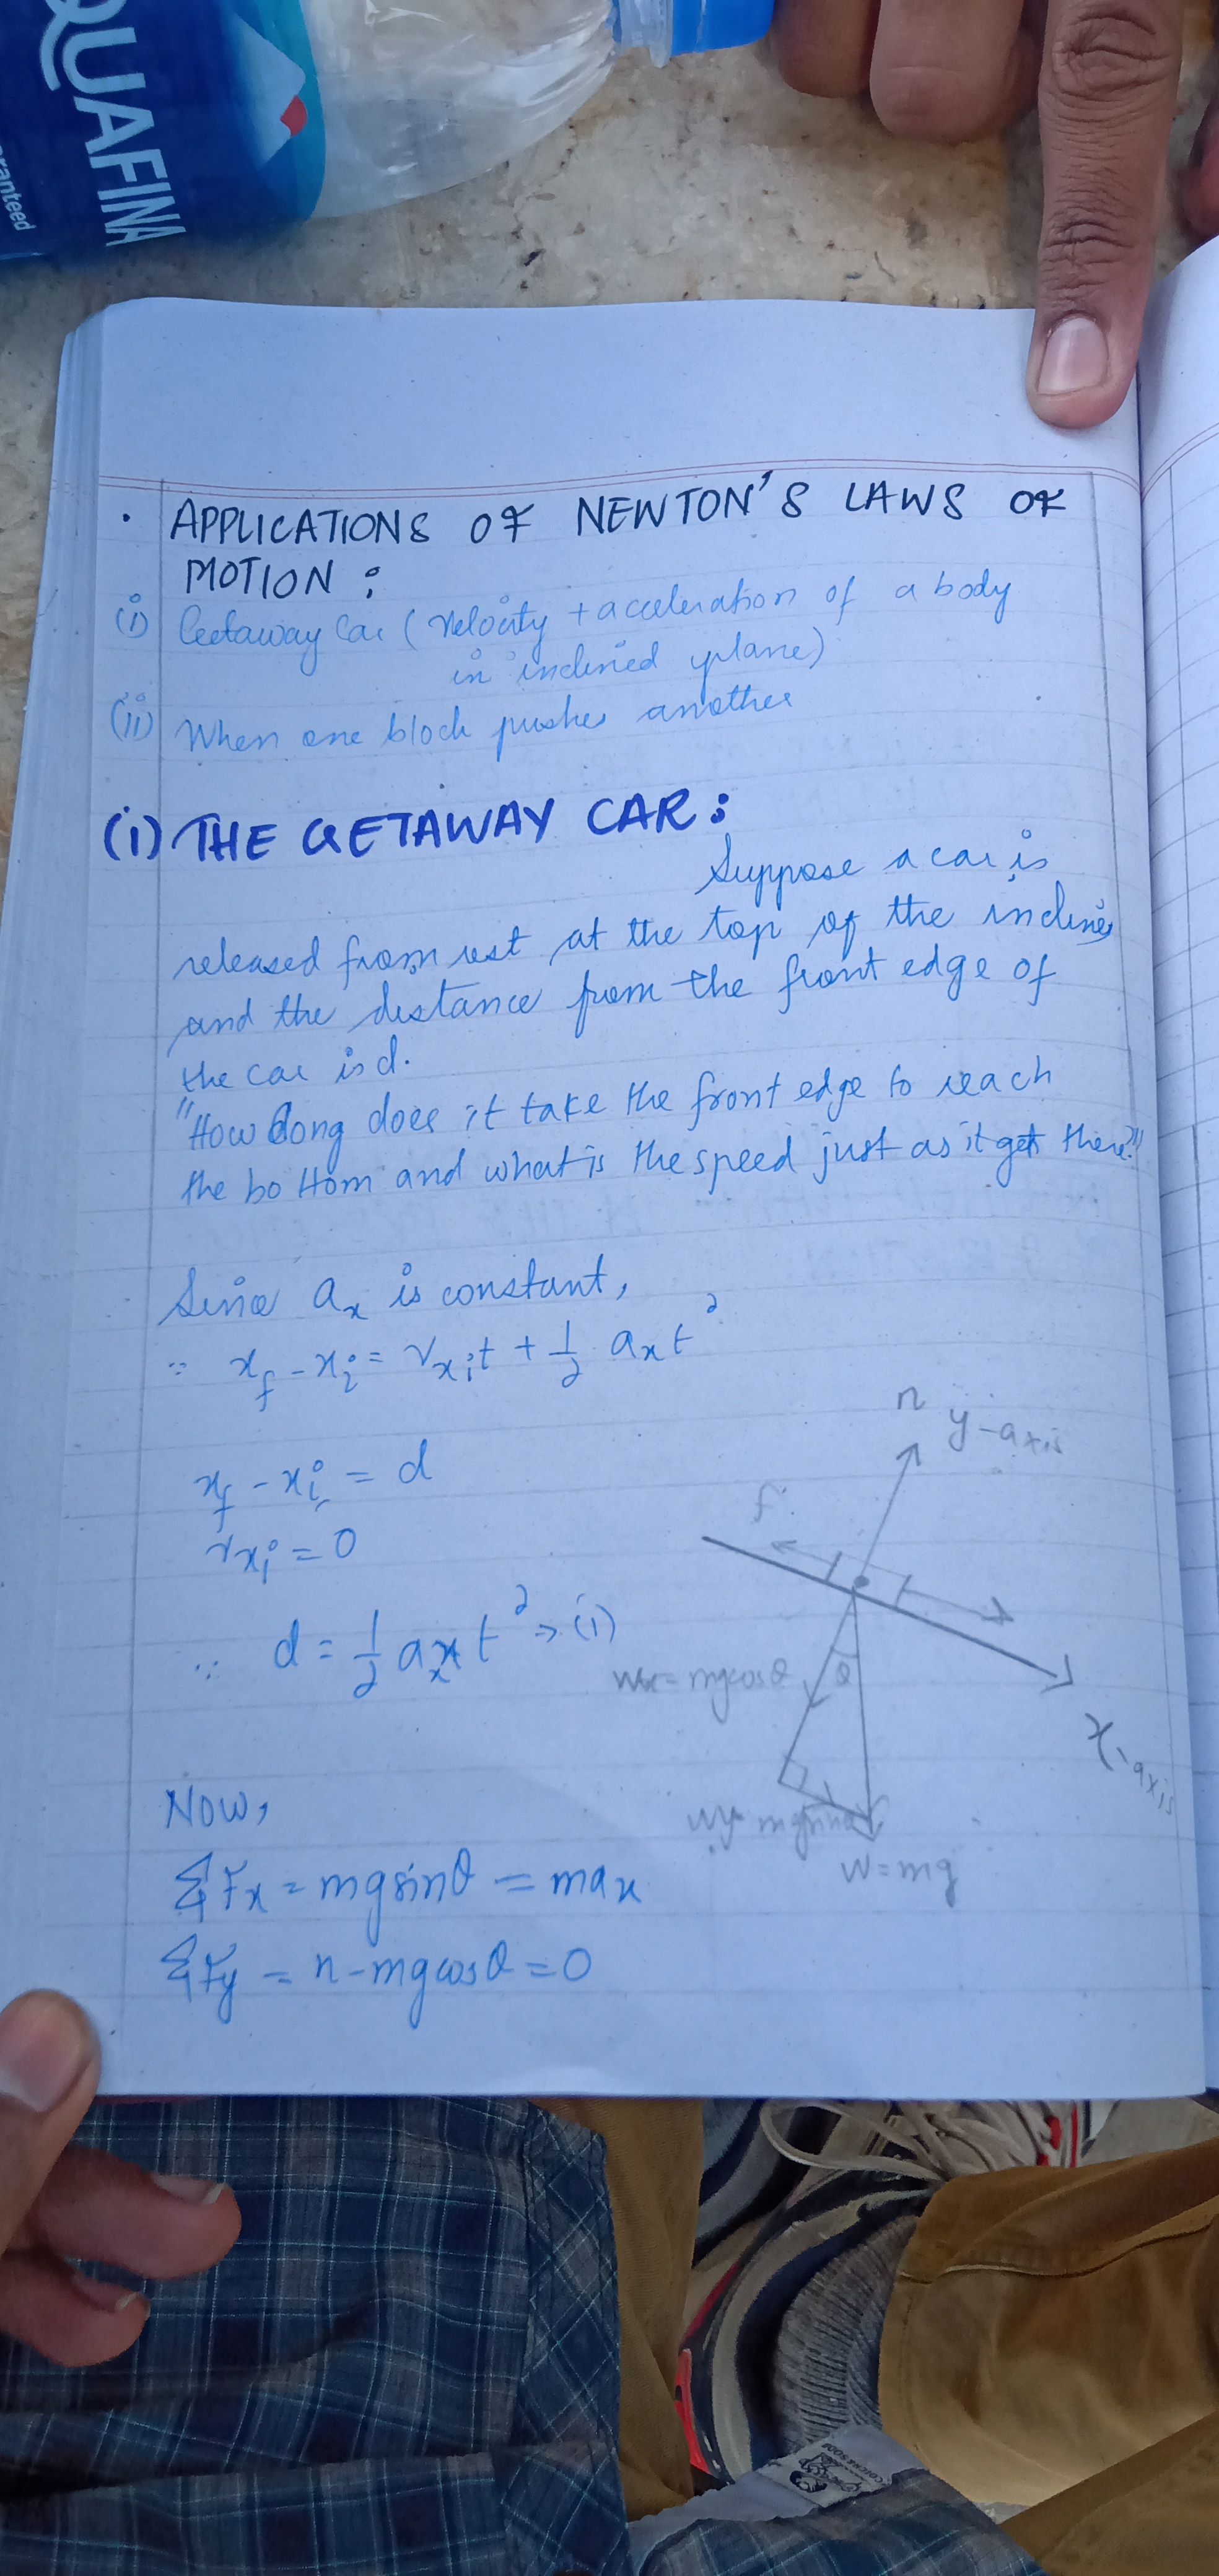 QUAFINA
ranteed
• APPLICATIONS OF NEWTON'S LAWS OF
MOTION :
(i) Getaway Car (velocity + acceleration of a body
in inclined plane)
(ii) When one block pushes another
(i) THE GETAWAY CAR :
Suppose a car is
released from rest at the top of the incline,
and the distance from the front edge of
the car is d.
"How long does it take the front edge to reach
the bottom and what is the speed just as it gets there?"
Since aₓ is constant,
∵ x_f - x_i = v_xi t + 1/2 aₓt²
n
y-axis
x_f - x_i = d
f
v_xi = 0
∵ d = 1/2 aₓt² → (i)
θ
Wx = mgcosθ
x-axis
Now,
Wy = mgsinθ
W = mg
ΣFx = mgsinθ = max
ΣFy = n - mgcosθ = 0